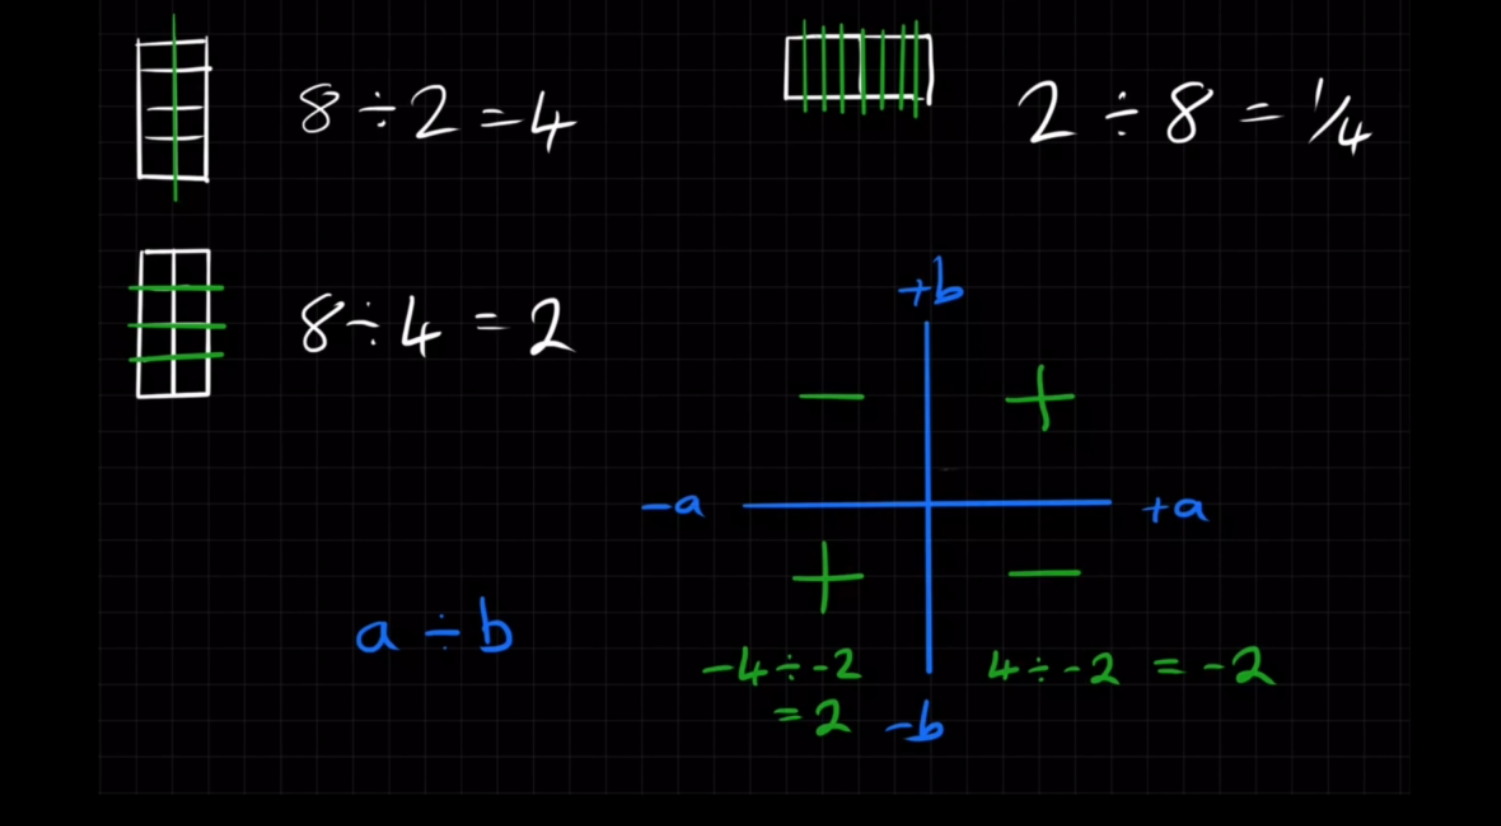 8 ÷ 2 = 4
2 ÷ 8 = 1/4
8 ÷ 4 = 2
+b
− +
-a +a
+ −
a ÷ b
-4 ÷ -2
= 2
4 ÷ -2 = -2
-b